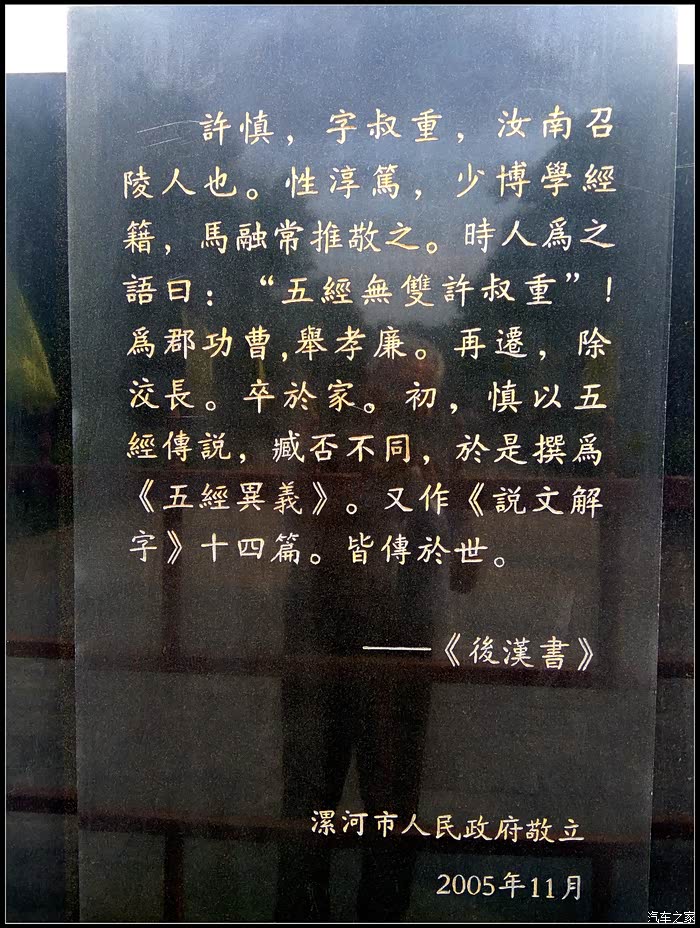 許慎，字叔重，汝南召
陵人也。性淳篤，少博學經
籍，馬融常推敬之。時人爲之
語曰：“五經無雙許叔重”！
爲郡功曹,舉孝廉。再遷，除
洨長。卒於家。初，慎以五
經傳説，臧否不同，於是撰爲
《五經異義》。又作《説文解
字》十四篇。皆傳於世。
——《後漢書》
漯河市人民政府敬立
2005年11月
汽车之家